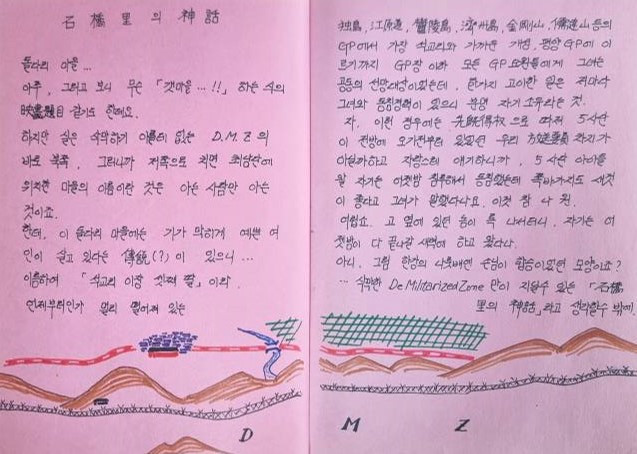 石橋里의 神話
돌다리 마을...
아주, 그리고 보니 무슨 「갯마을...!!」 하는 식의
映畵題目 같기도 한데요.
하지만 실은 삭막하기 이를데 없는 D.M.Z의
바로 북쪽, 그러니까 저쪽으로 치면 최남단에
위치한 마을의 이름이란 것은 아는 사람만 아는
것이죠.
헌데, 이 돌다리 마을에는 기가 막히게 예쁜 여
인이 살고 있다는 傳統(?)이 있으니...
이름하여 「석교리 이장 첫째 딸」이라.
언제부터인가 멀리 떨어져 있는
独島, 江原道, 鬱陵島, 濟州島, 金剛山, 등의
GP에서 가장 석교리와 가까운 개성, 평양 GP에 이
르기까지 GP장 이하 모든 GP요원들에게 그녀는
공동의 선망대상이었는데, 한가지 고이한 일은 저마다
그녀와 동침경력이 있으니 분명 자기 소유라는 것.
자, 이런 경우에는 先取得权으로 따져 5사단
이 전방에 오기전부터 있었던 우리 放送要員 차지가
아닌가하고 자랑스레 얘기하니까, 5사단 아이들
왈 자기는 이첫밤 침투해서 동침했는데
이 좋다고 그녀가 말했다나요. 이것 참 나 원.
어럽쇼. 고 옆에 있던 놈이 툭 나서더니, 자기는 어
젯밤이 다 끝나갈 새벽에 하고 왔다나.
아니, 그럼 한강의 나룻배엔 손님이 모양이죠?
... 삭막한 DeMilitarized Zone 만이 지닐수 있는 「石橋
里의 神話」라고 생각할수 밖에.
D M Z